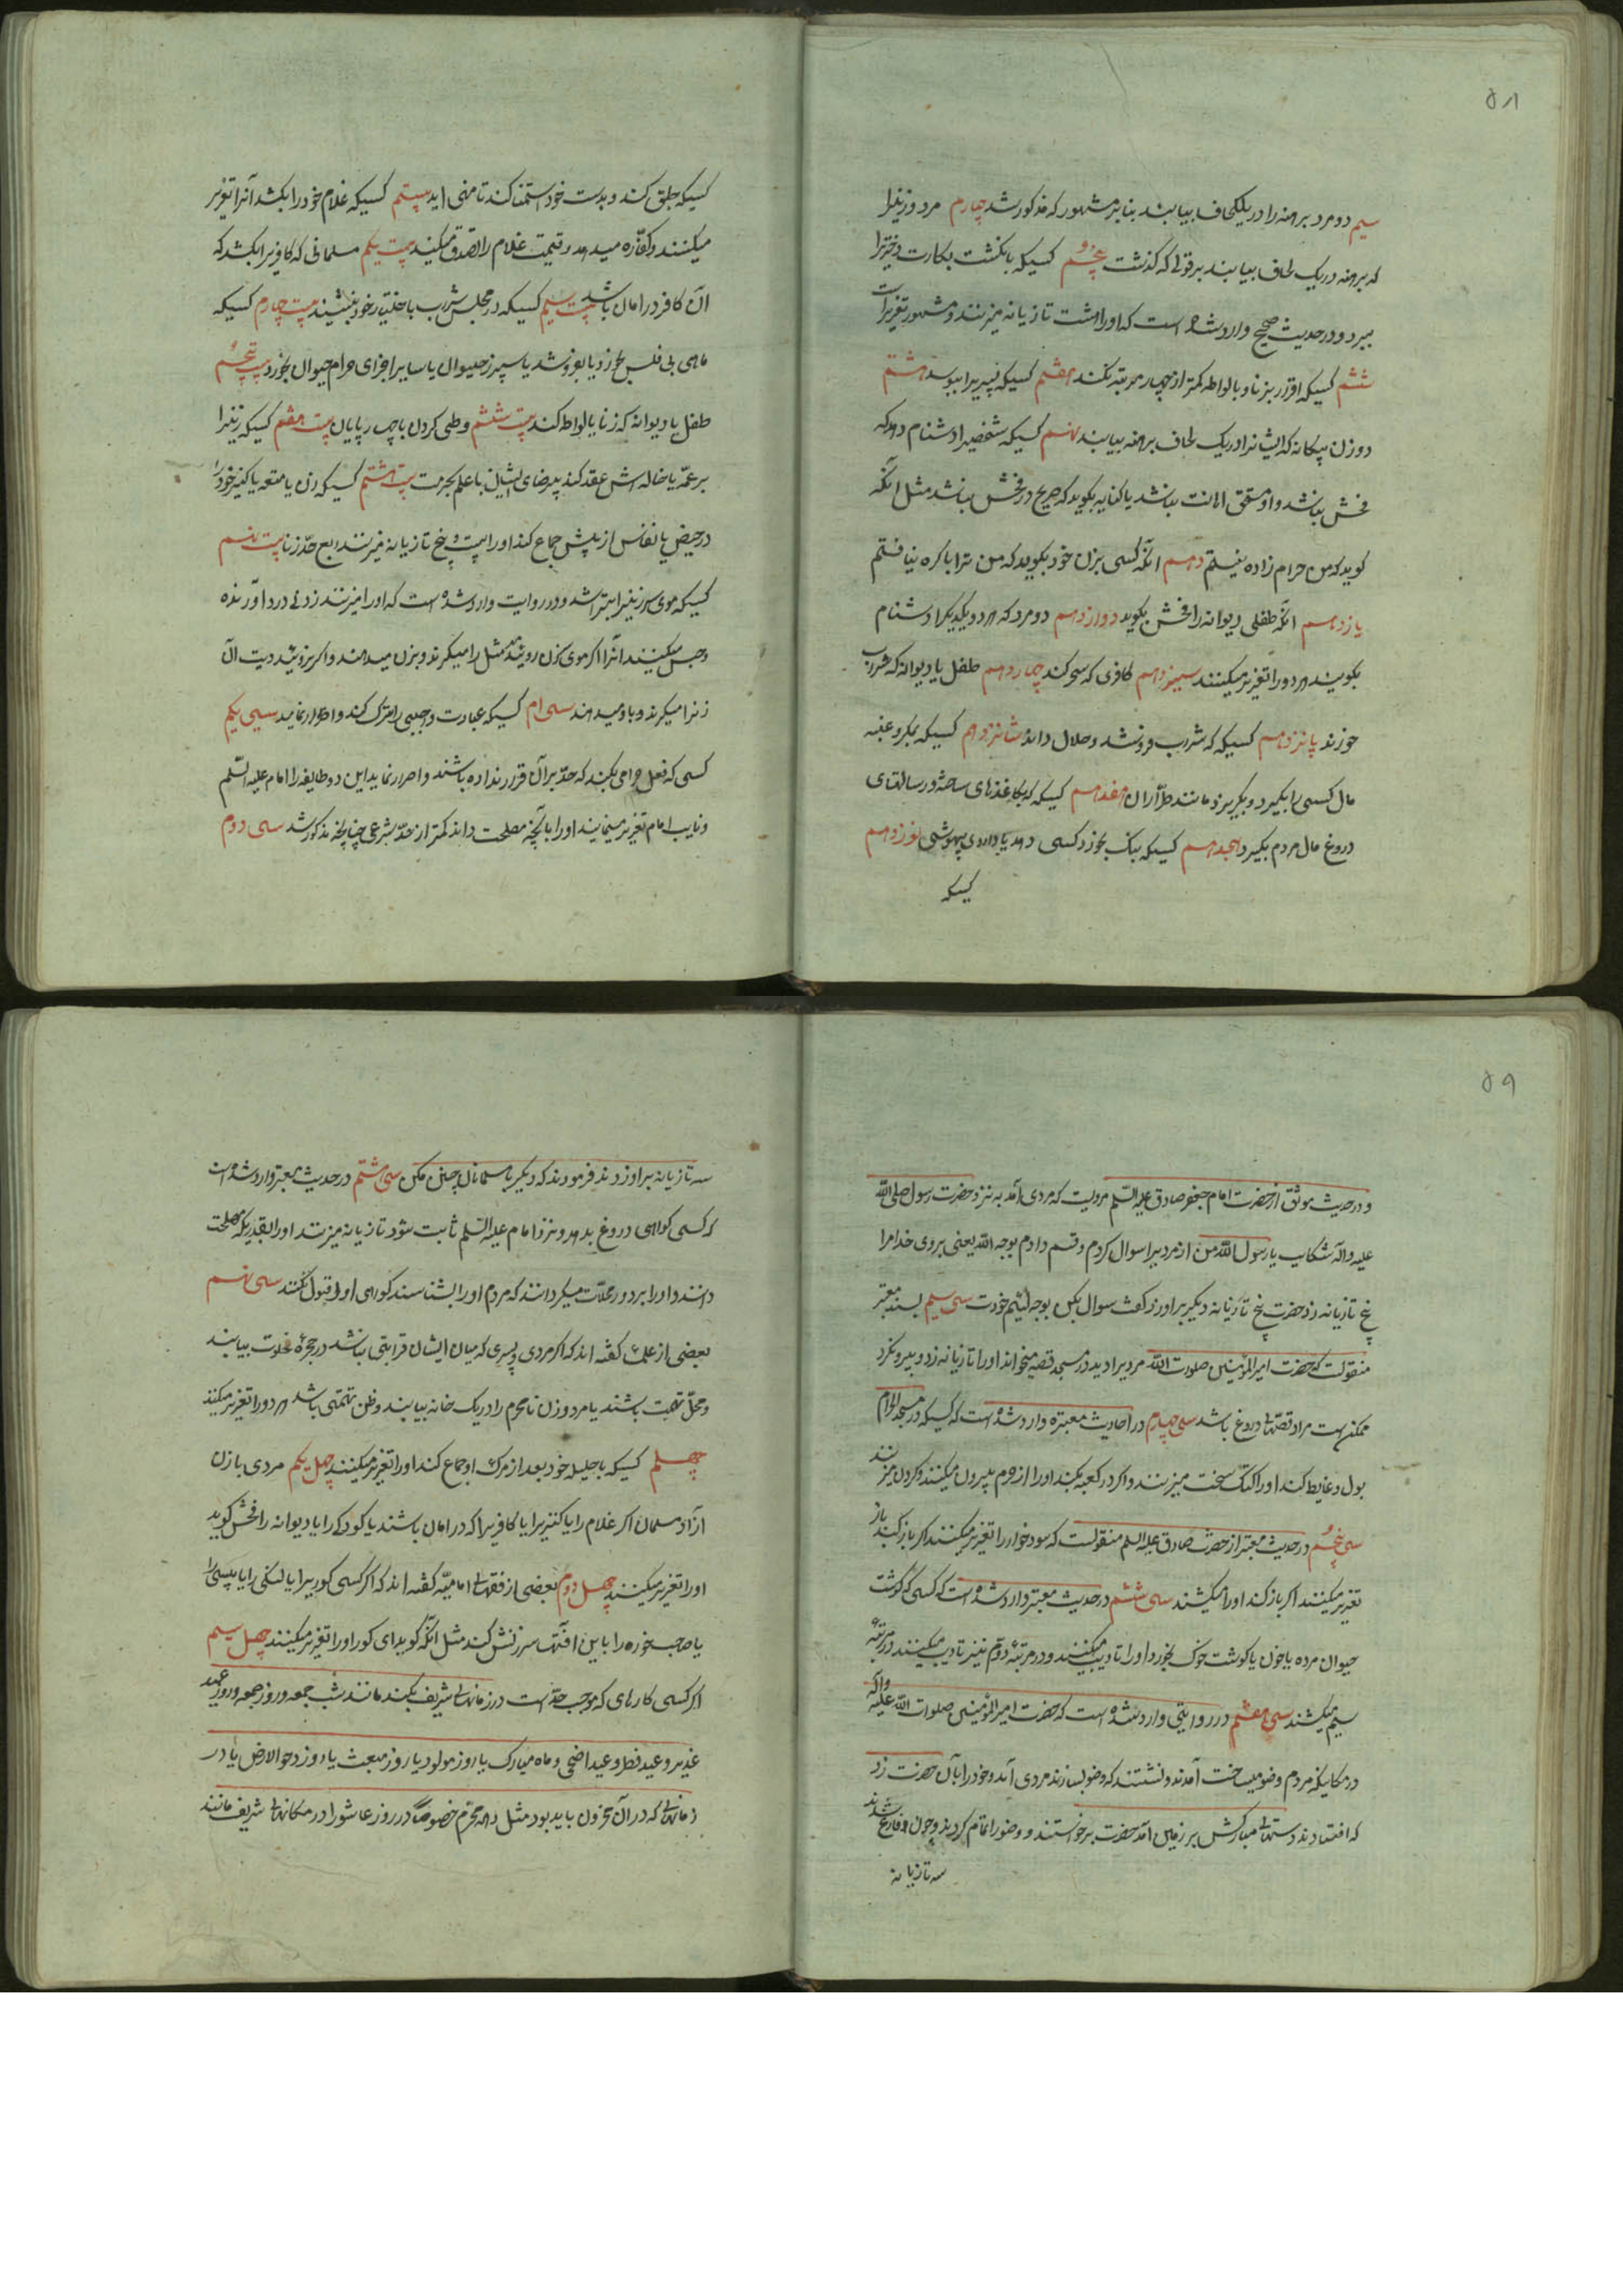 ۵۸
سیم دو مرد برهنه را در یکلحاف بیابند بنابر مشهور که مذکور شد چهارم مرد و زنیرا
که برهنه در یک لحاف بیابند بر قولی که گذشت پنجم کسیکه بانگشت بکارت دختریرا
ببرد و در حدیث صحیح وارد شده است که او را هشتاد تازیانه میزنند و مشهور تعزیر است
ششم کسیکه اقرار بزنا و یا لواطه کمتر از چهار مرتبه بکند هفتم کسیکه پسیریرا ببوسد هشتم
دو زن بیگانه که ایشانرا در یک لحاف برهنه بیابند نهم کسیکه شخصیرا دشنام دهد که
فحش نباشد و او مستحق اهانت نباشد یا کنایه بگوید که صریح در فحش نباشد مثل آنکه
گوید که من حرام زاده نیستم دهم آنکه کسی بزن خود بگوید که من ترا باکره نیافتم
یازدهم آنکه طفلی دیوانه را فحش بگوید دوازدهم دو مرد که هر دو یکدیگر را دشنام
بگویند هر دو را تعزیر میکنند سیزدهم کافری که سحر کند چهاردهم طفل یا دیوانه که شراب
خورند پانزدهم کسیکه که شراب فروشد و حلال داند شانزدهم کسیکه بمکر و
مال کسی را بگیرد و بگریزد مانند طرّاران هفدهم کسیکه که بکاغذهای ساخته و رسالتهای
دروغ مال مردم بگیرد هجدهم کسیکه بنک بخورد کسی دهد یا داروی بیهوشی نوزدهم
کسیکه
کسیکه جلق کند و بدست خود استمنا کند تا منی اید بیستم کسیکه غلام خود را بکشد آنرا تعزیر
میکنند و کفّاره میدهد و قیمت غلام را تصدق میکنید بیست یکم مسلمانی که کافریرا بکشد که
آن کافر در امان باشد بیست سیم کسیکه در مجلس شراب باختیار خود بنشیند بیست چهارم کسیکه
ماهی بی فلس بخورد یا بفروشد یا سپرز حیوان یا سایر اجزای حرام حیوان بخورد بیست پنجم
طفل یا دیوانه که زنا یا لواط کند بیست ششم وطی کردن با چهار پایان بیست هفتم کسیکه زنیرا
بر عمّه یا خاله اش عقد کند بیرضای ایشان با علم بحرمت بیست هشتم کسیکه زن یا متعه یا کنیز خود را
در حیض یا نفاس از پیش جماع کند او را بیست و پنج تازیانه میزنند ربع حدّ زنا بیست نهم
کسیکه موی سر زنیرا بتراشد و در روایت وارد شده است که او را میزنند زدنی درد آورنده
و حبس میکنند آنرا اگر موی زن روئید مثل را میگیرند و بزن میدهند و اگر نروئید دیت آن
زنرا میگیرند و باو میدهند سی ام کسیکه عبادت واجبی را ترک کند و اصرار نماید سی یکم
کسی که فعل حرامی بکند که حدّ بر آن قرار نداده باشند و اصرار نماید این دو طایفه را امام علیه السّلم
و نایب امام تعزیر مینمایند او را بآنچه مصلحت داند کمتر از حدّ شرعی چنانچه مذکور شد سی دوم
۵۹
و در حدیث موثق از حضرت امام جعفر صادق علیه السّلم مرویست که مردی آمد به نزد حضرت رسول صلی اللّه
علیه و آله شکایت یا رسول اللّه من از مردیرا سوال کردم و قسم دادم بوجه اللّه یعنی بروی خدا مرا
پنج تازیانه زد حضرت پنج تازیانه دیگر بر او زد گفت سوال بکن بوجه لئیم خودت سی سیم بسند معتبر
منقولست که حضرت امیر المؤمنین صلوات اللّه مردیرا دید در مسجد قصه میخواند او را تازیانه زد و بیرونکرد
ممکن است مراد قصّهای دروغ باشد سی چهارم در احادیث معتبره وارد شده است که کسیکه در مسجد الحرام
بول و غایط کند او را کتک سخت میزنند و اگر در کعبه بکند او را از حرم بیرون میکنند و گردن میزنند
سی پنجم در حدیث معتبر از حضرت صادق علیه السلم منقولست که سودخوار را تعزیر میکنند اگر باز کند باز
تعزیر میکنند اگر باز کند او را میکشند سی ششم در حدیث معتبر وارد شده است که کسی که گوشت
حیوان مرده یا خون یا گوشت خوک بخورد او را تادیب میکنند و در مرتبهٔ دوّم نیز تادیب میکنند در مرتبه
سیم میکشند سی هفتم در روایتی وارد شده است که حضرت امیر المؤمنین صلوات اللّه علیه و آله
در مکانیکه مردم وضو میساخت آمدند و نشستند که وضو بسازند مردی آمد و خود را بآن حضرت زد
که افتادند دستهای مبارکش بر زمین آمد حضرت برخواستند و وضو را تمام کردند و چون فارغ شدند
سه تازیانه
سه تازیانه بر او زدند فرمودند که دیگر با مسلمانان چنین مکن سی هشتم در حدیث معتبر وارد شده است
که کسی گواهی دروغ بدهد و نزد امام علیه السّلم ثابت شود تازیانه میزنند او را بقدریکه مصلحت
دانند و او را بر دور محلّات میگردانند که مردم او را بشناسند گواهی او را قبول نکنند سی نهم
بعضی از علما گفته اند که اگر مردی و پسری که میان ایشان قرابتی نباشد در حجرهٔ خلوت بیابند
و محلّ تهمت باشند یا مرد و زن نامحرم را در یک خانه بیابند و ظن تهمتی باشد هر دو را تعزیر میکنند
چهلم کسیکه با حلیله خود بعد از مرگ او جماع کند او را تعزیر میکنند چهل یکم مردی با زن
آزاد مسلمان اگر غلام را یا کنیزیرا یا کافریرا که در امان باشند یا کودکی را یا دیوانه را فحش گوید
او را تعزیر میکنند چهل دوم بعضی از فقهای امامیّه گفته اند که اگر کسی کوریرا یا لنگی را یا پیسی را
یا صاحب خوره را باین افتها سرزنش کند مثل آنکه گوید ای کور او را تعزیر میکنند چهل سیم
اگر کسی کارهای که موجب حدّ است در زمانهای شریف بکند مانند شب جمعه و روز جمعه و روز عید
غدیر و عید فطر و عید اضحی و ماه مبارک یا روز مولود یا روز مبعث یا روز دحو الارض یا در
زمانهای که در آن محزون باید بود مثل دهه محرّم خصوصاً در روز عاشورا در مکانهای شریف مانند